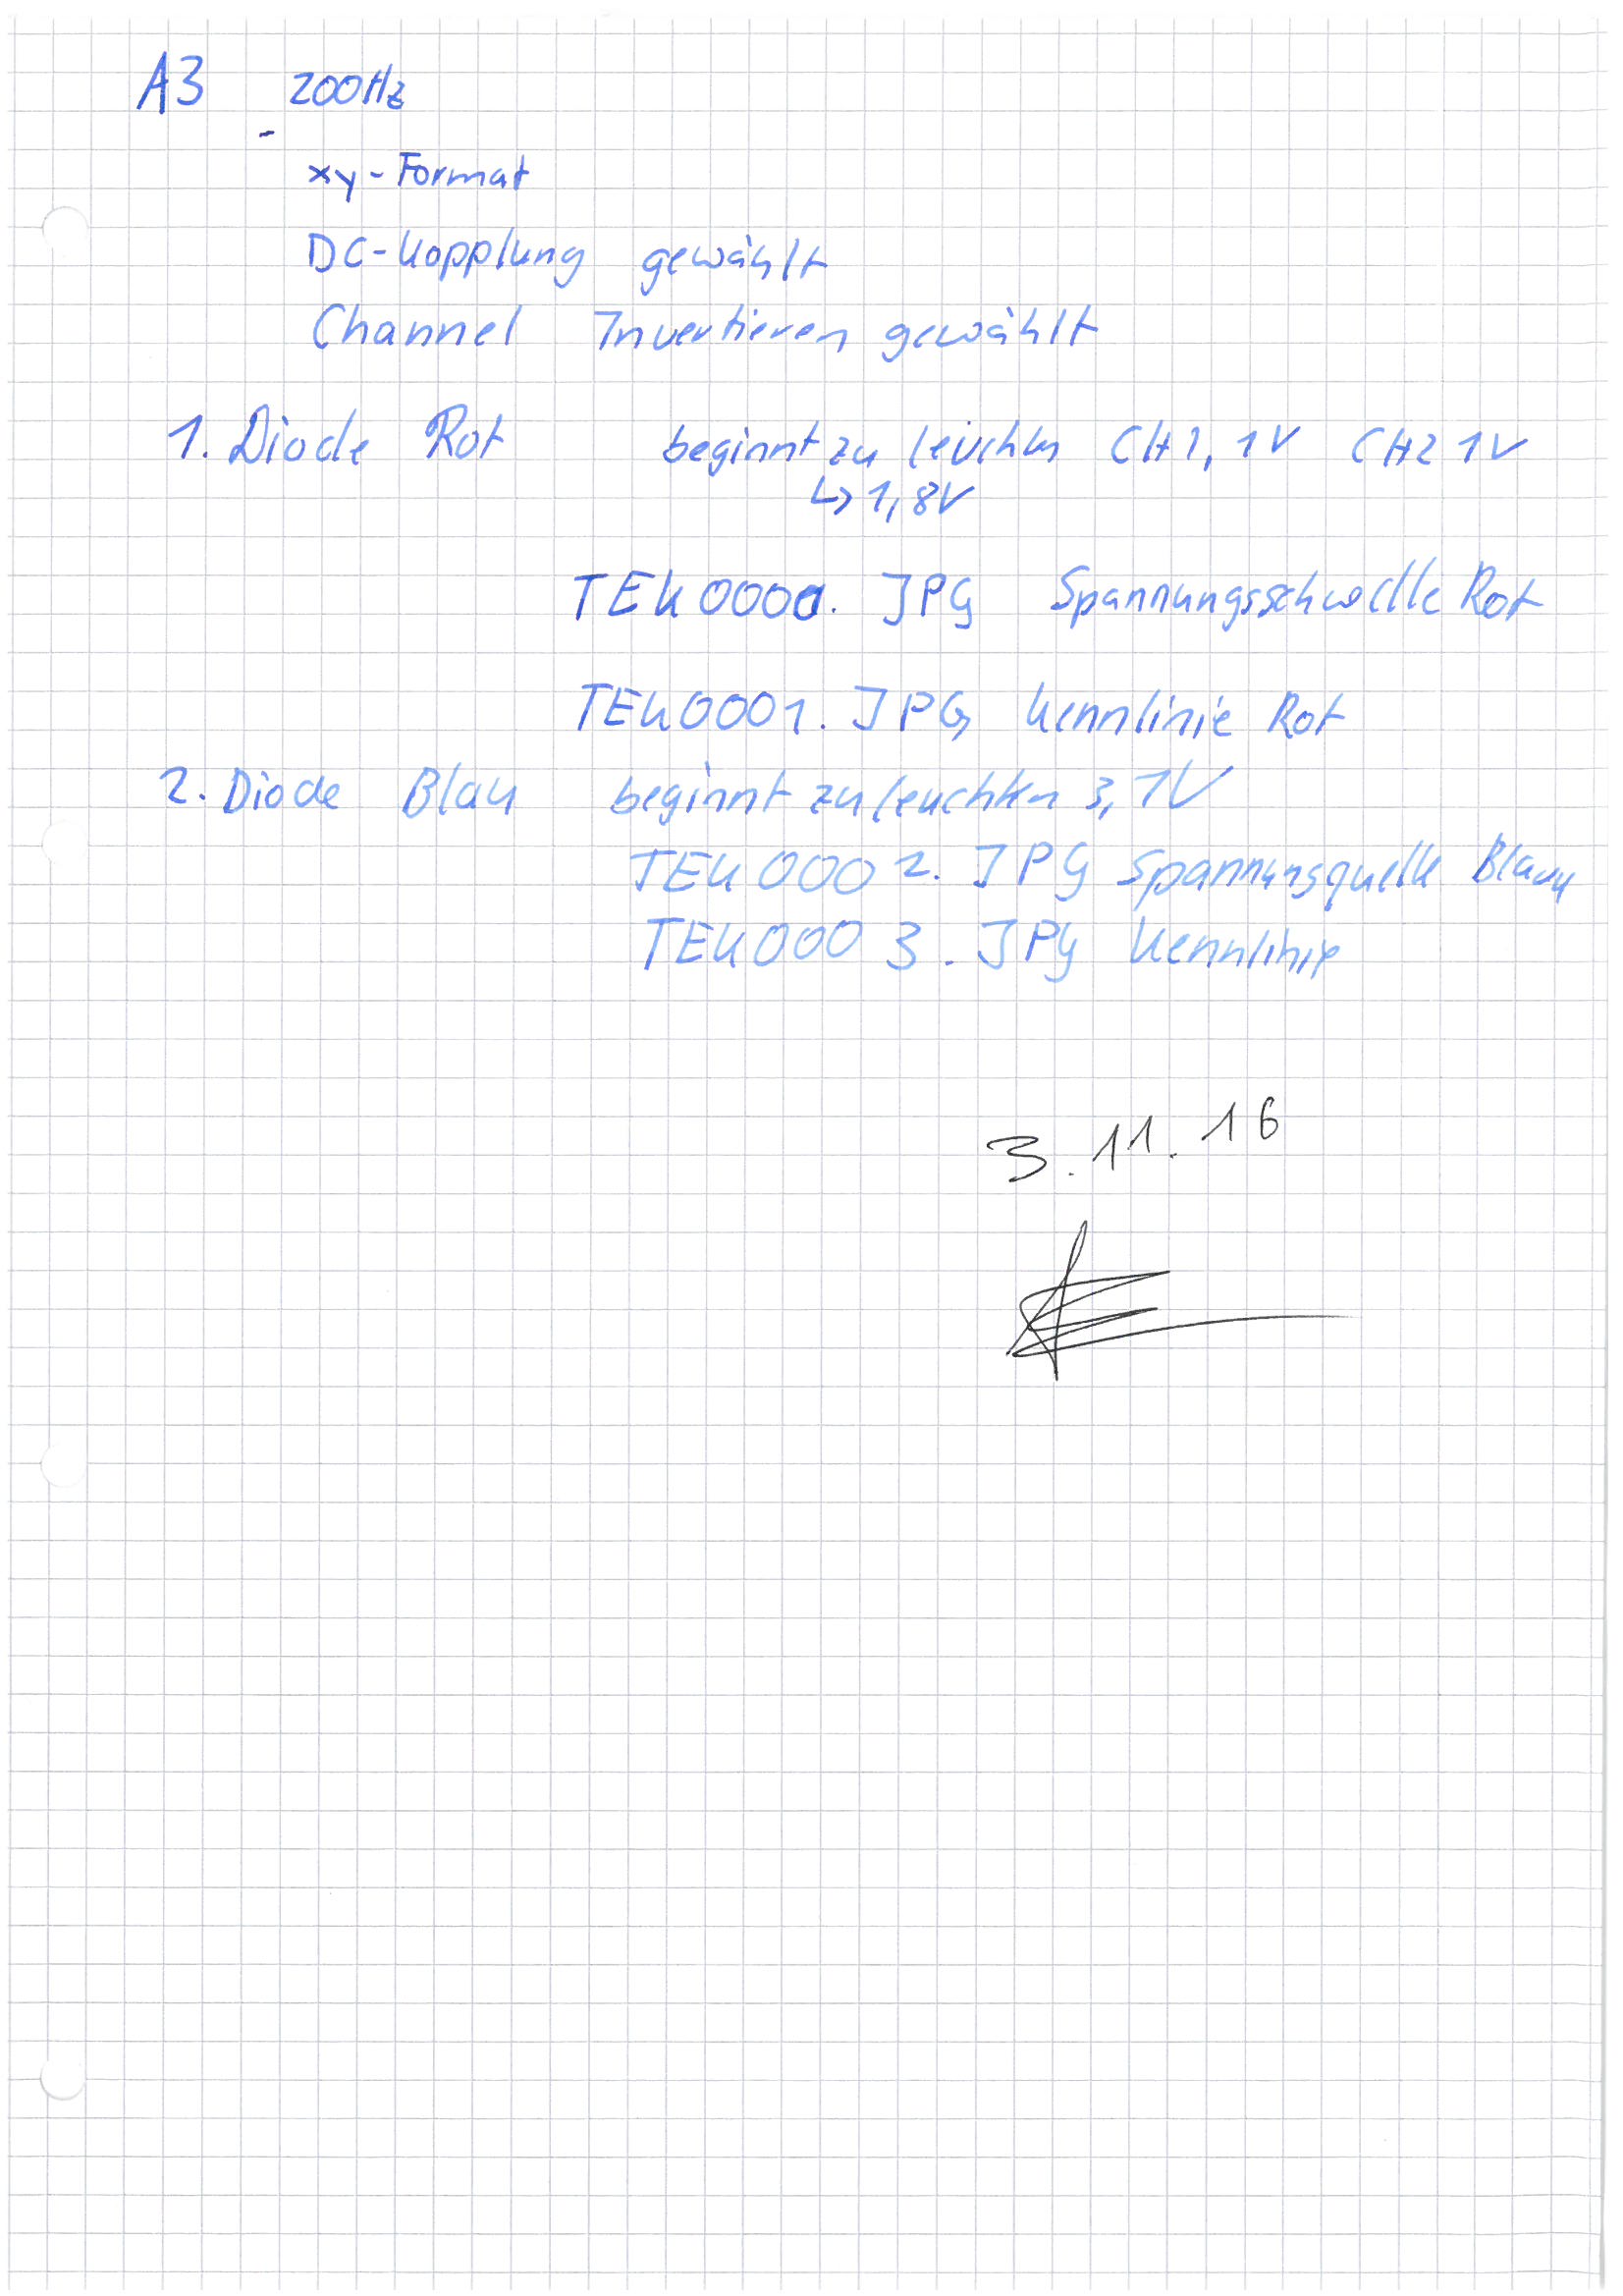 A3 200Hz
-
xy-Format
DC-Kopplung gewählt
Channel Invertieren gewählt
1. Diode Rot beginnt zu leuchten CH1, 1V CH2 1V
↳ 1,8V
TEK0000. JPG Spannungsschwelle Rot
TEK0001. JPG Kennlinie Rot
2. Diode Blau beginnt zu leuchten 3,1V
TEK0002. JPG Spannungsquelle Blau
TEK0003. JPG Kennlinie
3.11.16